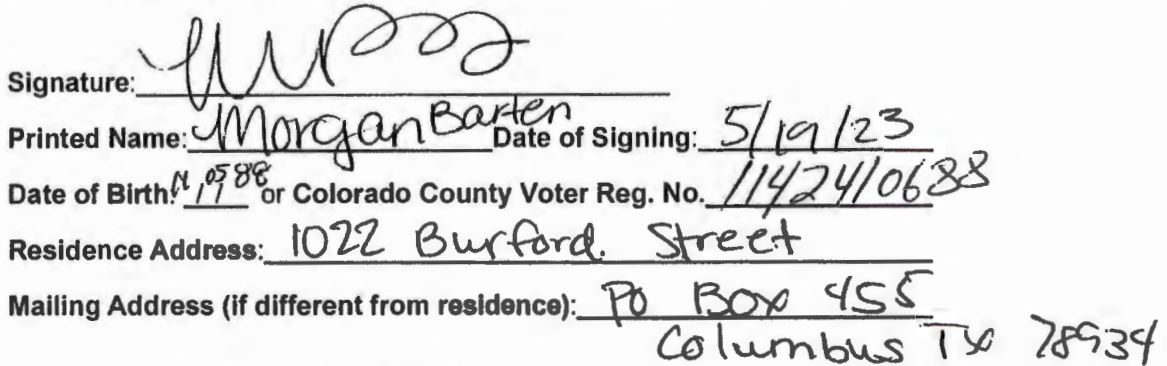 Signature:
Printed Name: Morgan Barten Date of Signing: 5/19/23
Date of Birth: 88 or Colorado County Voter Reg. No. 1142410688
Residence Address: 1022 Burford. Street
Mailing Address (if different from residence): PO Box 455
Columbus Tx 78934